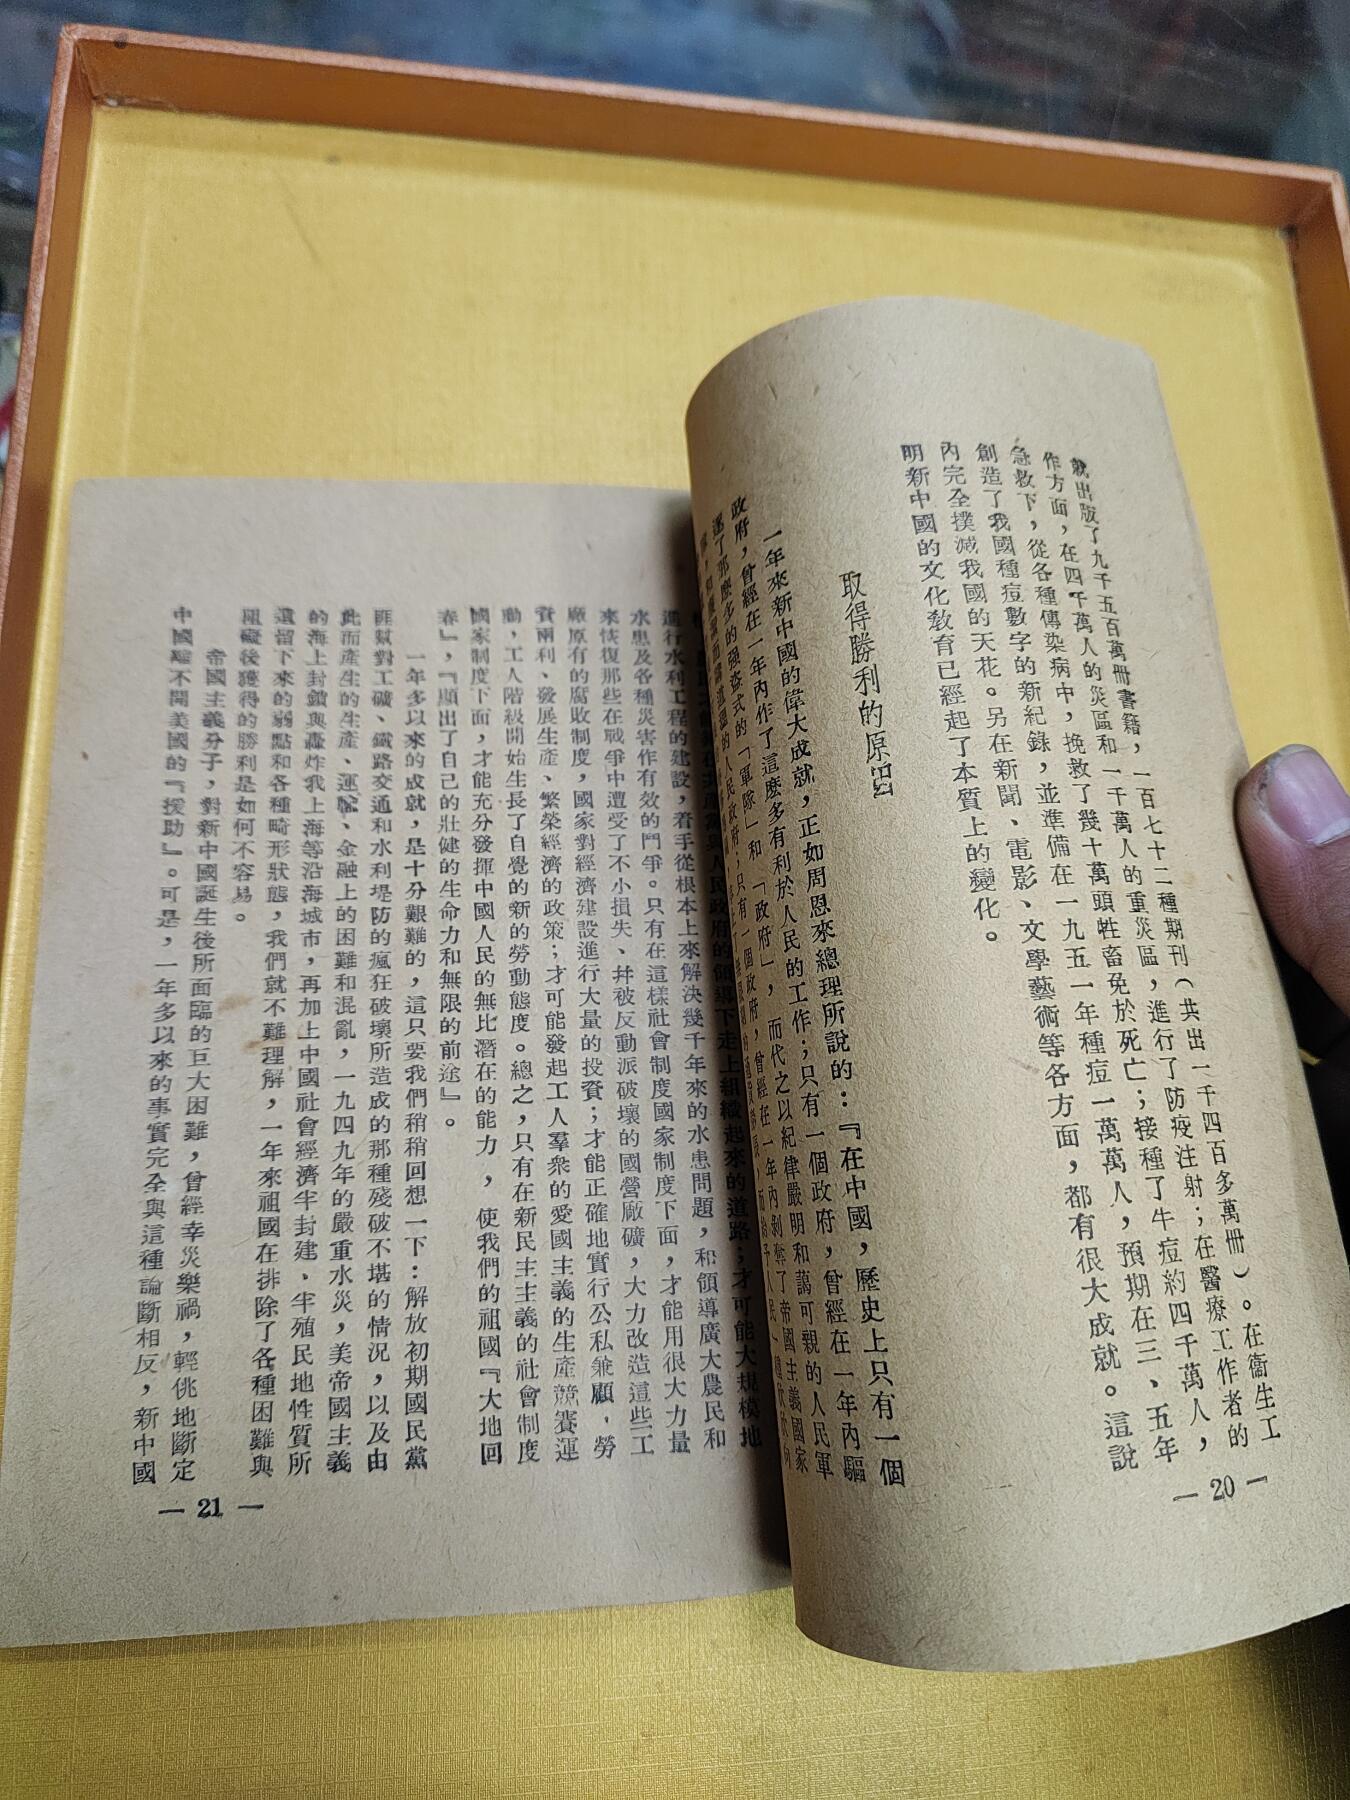 就出版了九千五百萬冊書籍，一百七十二種期刊（共出一千四百多萬冊）。在衞生工
作方面，在四千萬人的災區和一千萬人的重災區，進行了防疫注射；在醫療工作者的
急救下，從各種傳染病中，挽救了幾十萬頭牲畜免於死亡；接種了牛痘約四千萬人，
創造了我國種痘數字的新紀錄，並準備在一九五一年種痘一萬萬人，預期在三、五年
內完全撲滅我國的天花。另在新聞、電影、文學藝術等各方面，都有很大成就。這說
明新中國的文化敎育已經起了本質上的變化。
取得勝利的原因
一年來新中國的偉大成就，正如周恩來總理所說的：『在中國，歷史上只有一個
政府，曾經在一年內作了這麼多有利於人民的工作；只有一個政府，曾經在一年內驅
逐了那麼多的强盜式的「軍隊」和「政府」，而代之以紀律嚴明和藹可親的人民軍
人民政府；只有一個政府，曾經在一年內剝奪了帝國主義國家
— 20 —
人民政府的領導下走上組織起來的道路；才可能大規模地
進行水利工程的建設，着手從根本上來解決幾千年來的水患問題，和領導廣大農民和
水患及各種災害作有效的鬥爭。只有在這樣社會制度國家制度下面，才能用很大力量
來恢復那些在戰爭中遭受了不小損失、幷被反動派破壞的國營廠礦，大力改造這些工
廠原有的腐敗制度，國家對經濟建設進行大量的投資；才能正確地實行公私兼顧，勞
資兩利、發展生產、繁榮經濟的政策；才可能發起工人羣衆的愛國主義的生產競賽運
動，工人階級開始生長了自覺的新的勞動態度。總之，只有在新民主主義的社會制度
國家制度下面，才能充分發揮中國人民的無比潛在的能力，使我們的祖國『大地回
春』，『顯出了自己的壯健的生命力和無限的前途』。
一年多以來的成就，是十分艱難的，這只要我們稍稍回想一下：解放初期國民黨
匪幫對工礦、鐵路交通和水利堤防的瘋狂破壞所造成的那種殘破不堪的情況，以及由
此而產生的生產、運輸、金融上的困難和混亂，一九四九年的嚴重水災，美帝國主義
的海上封鎖與轟炸我上海等沿海城市，再加上中國社會經濟半封建、半殖民地性質所
遺留下來的弱點和各種畸形狀態，我們就不難理解，一年來祖國在排除了各種困難與
阻礙後獲得的勝利是如何不容易。
帝國主義分子，對新中國誕生後所面臨的巨大困難，曾經幸災樂禍，輕佻地斷定
中國離不開美國的『援助』。可是，一年多以來的事實完全與這種論斷相反，新中國
— 21 —